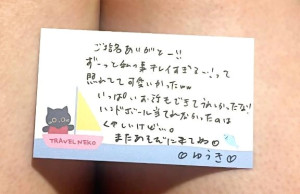 ご指名ありがとー!!
ずーっと私の事キレイすぎるー!って
照れてて可愛いかったww
いっぱいお話もできてうれしかったな!
ハンドボール当てれなかったのは
くやしいけど…。
またあそびにきてね♡
♡ゆうき♡
TRAVEL NEKO